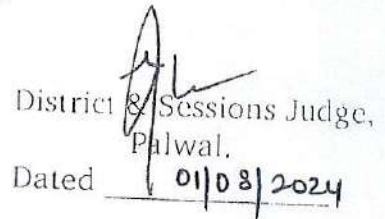 District & Sessions Judge,
Palwal.
Dated 01/08/2024